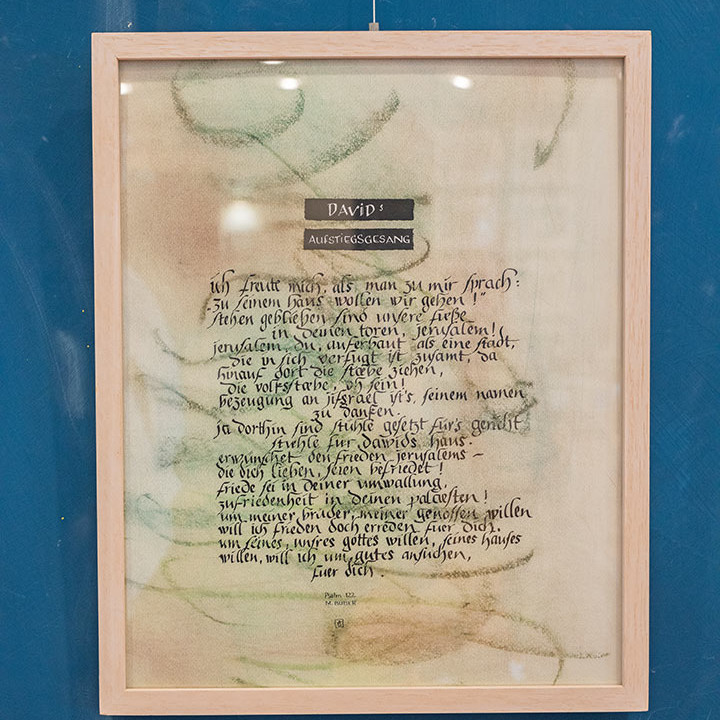 DAVID's
AUFSTIEGSGESANG
ich freute mich, als man zu mir sprach:
"zu seinem haus wollen wir gehen!"
stehen geblieben sind unsere füße
in deinen toren, jerusalem!
jerusalem, du, auferbaut als eine stadt,
die in sich verfugt ist zusamt, da
hinauf dort die stæbe ziehen,
die volksstæbe, oh sein!
bezeugung an jifsrael ist's, seinem namen
zu danken.
ja dorthin sind stühle gesetzt für's gericht
stuehle für dawids haus.
erwünschet den frieden jerusalems –
die dich lieben, seien befriedet!
friede sei in deiner umwallung,
zufriedenheit in deinen palæsten!
um meiner brüder, meiner genossen willen
will ich frieden doch erreden fuer dich.
um seines, unsres gottes willen, seines hauses
willen, will ich um gutes ansuchen,
fuer dich.
Psalm 122
M. BUBER